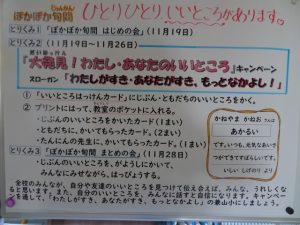 じゅんかん
ぽかぽか旬間
ひとりひとり、いいところがあります。
とりくみ1)「ぽかぽか旬間 はじめの会」(11月19日)
とりくみ2)(11月19日〜11月26日)
だいはっけん
「大発見!わたし・あなたのいいところ」キャンペーン
スローガン 「わたしがすき・あなたがすき、もっとなかよし!」
① 「いいところはっけんカード」にじぶん・ともだちのいいところをかく。
② プリントにはって、教室のポケットに入れる。
・じぶんのいいところをかいたカード(1まい)
・ともだちに、かいてもらったカード。(2まい)
・たんにんの先生に、かいてもらったカード。(1まい)
とりくみ3)「ぽかぽか旬間 まとめの会」(11月28日)
・じぶんのいいところを、がようしにかいて、
みんなにみせながら、はっぴょうする。
かねやま かねお さんは
あかるい
です。いつも、元気なあいさ
つができてすばらしいです。
いいい しげのり より
全校のみんなが、自分や友達のいいところを見つけて伝え合えば、みんな、うれしくな
ると思います。また、自分のいいところを、みんなに話すと自信になります。キャンペー
ンを通して、「わたしがすき、あなたがすき、もっとなかよし」の兼山小にしましょう。